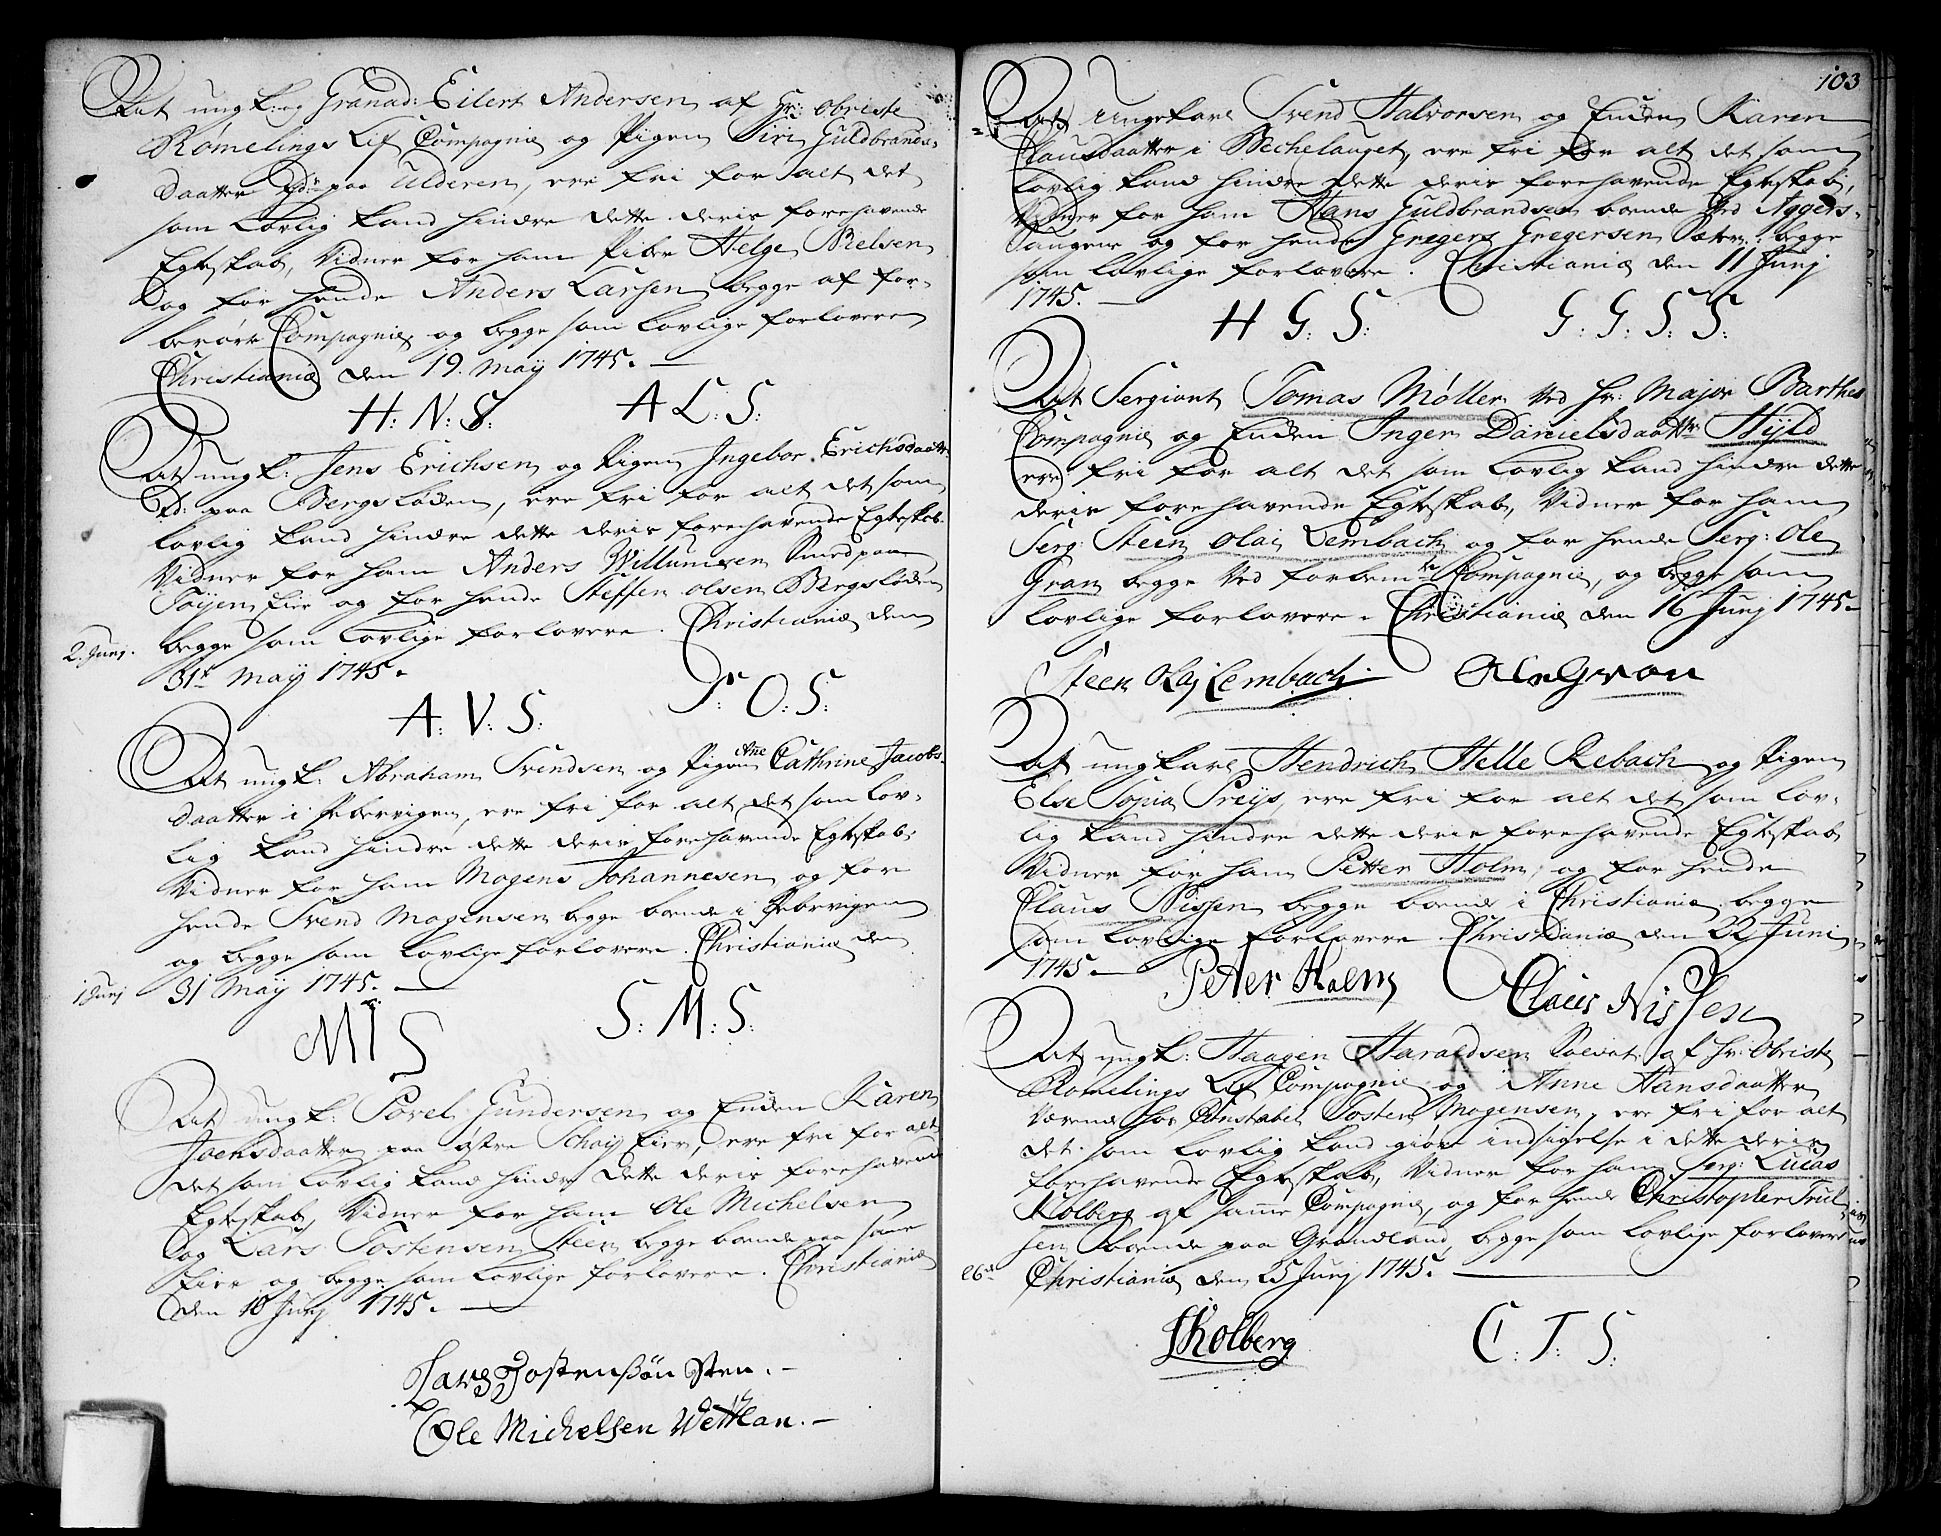 At ungk: og Granad: Eilert Andersen af Hr: Obriste
Rømelings Lif Compagnie og Pigen Siri Guldbrands-
daatter paa Ulderen, ere fri for alt det
som lovlig kand hindre dette deris forehavende
Egteskab, Vidner for ham Piber Helge Nielsen
og for hende Anders Larsen begge af for-
berørte Compagnie og begge som lovlige forlovere
Christiania den 19. May 1745. —
H: N: S: A L: S:
At ungk: Jens Erichsen og Pigen Ingebor Erichsdaatter
paa Bergsløden, ere fri for alt det som
lovlig kand hindre dette deris forehavende Egteskab.
Vidner for ham Anders Willumsen Smed paa
Tøyen Eie og for hende Steffen Olsen Bergsløden
2. Junj. begge som lovlige forlovere. Christiania den
31t May 1745.
A: V: S: S: O: S:
At ungk: Abraham Svendsen og Pigen Ane Cathrine Jacobs-
daatter i Pebervigen, ere fri for alt det som lov-
lig kand hindre dette deris forehavende Egteskab;
Vidner for ham Mogens Johannesen og for
hende Svend Mogensen begge boende i Pebervigen
og begge som lovlige forlovere. Christiania den
1 Junj 31 May 1745. —
M I S S: M: S:
At ungk: Povel Gundersen og Enken Karen
Joensdaatter paa østre Schøij Eier, ere fri for alt
det som lovlig kand hindre dette deris forehavende
Egteskab, Vidner for ham Ole Michelsen
og Lars Tostensen Steen begge boende paa samme
Eier og begge som lovlige forlovere. Christiania
den 10 Junj 1745. —
Lars Tostensøn Sten. —
Ole Michelsen Wettlan. —
103
At Ungekarl Svend Halvorsen og Enken Karen
Clausdaatter i Bechelauget, ere fri for alt det som
lovlig kand hindre dette deris forehavende Egteskab,
Vidner for ham Hans Guldbrandsen boende ved Aggers-
Saugene og for hende Gregers Gregersen Sæter: begge
som lovlige forlovere. Christiania den 11 Junj
1745. —
H G: S: G: G: S: S:
At Sergiant Tomas Møller ved Hr: Major Barthes
Compagnie og Enken Inger Danielsdaatter Hyld
ere fri for alt det som lovlig kand hindre dette
deris forehavende Egteskab, Vidner for ham
Serg: Steen Olai Lembach og for hende Serg: Ole
Gran begge ved forbemte Compagnie, og begge som
lovlige forlovere. Christiania den 16 Junj 1745 —
Steen Olaj Lembach Ole Gron
At ungkarl Hendrich Helle Rebach og Pigen
Else Sopia Preijs, ere fri for alt det som lov-
lig kand hindre dette deris forehavende Egteskab
Vidner for ham Petter Holm, og for hende
Claus Nissen begge boende i Christiania begge
som lovlige forlovere Christiania den 22 Juni
1745 —
Peter Holm Claus Nissen
At ungk: Haagen Haraldsen Soldat af Hr: Obriste
Rømelings Lif Compagnie og Anne Hansdaatter
værende hos Constabel Tosten Mogensen, ere fri for alt
det som lovlig kand giøre indsigelse i dette deris
forehavende Egteskab, Vidner for ham Serg: Lucas
Kolberg af samme Compagnie, og for hende Christopher Truel-
sen boende paa Grønland, begge som lovlige forlovere
26de Christiania den 25 Junj 1745. —
LKolberg C: T: S: